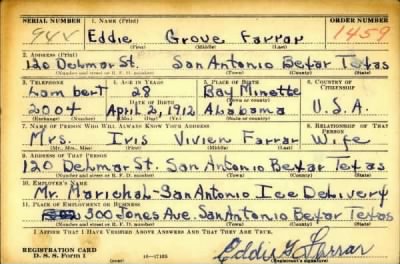 SERIAL NUMBER 1. NAME (Print) ORDER NUMBER
944 Eddie Grove Farrar 1459
(First) (Middle) (Last)
2. ADDRESS (Print)
120 Delmar St. San Antonio Bexar Texas
(Number and street or R. F. D. number) (Town) (County) (State)
3. TELEPHONE 4. AGE IN YEARS 5. PLACE OF BIRTH 6. COUNTRY OF CITIZENSHIP
Lambert 28 Bay Minette
DATE OF BIRTH
2004 April 2, 1912 Alabama U.S.A.
7. NAME OF PERSON WHO WILL ALWAYS KNOW YOUR ADDRESS 8. RELATIONSHIP OF THAT PERSON
Mrs. Iris Vivien Farrar Wife
(Mr., Mrs., Miss) (First) (Middle) (Last)
9. ADDRESS OF THAT PERSON
120 Delmar St, San Antonio Bexar Texas
(Number and street or R. F. D. number) (Town) (County) (State)
10. EMPLOYER'S NAME
Mr. Marichal-San Antonio Ice Delivery
11. PLACE OF EMPLOYMENT OR BUSINESS
300 Jones Ave. San Antonio Bexar Texas
(Number and street or R. F. D. number) (Town) (County) (State)
I AFFIRM THAT I HAVE VERIFIED ABOVE ANSWERS AND THAT THEY ARE TRUE.
REGISTRATION CARD
D. S. S. Form 1 16—17105 Eddie G. Farrar
(Registrant's signature)